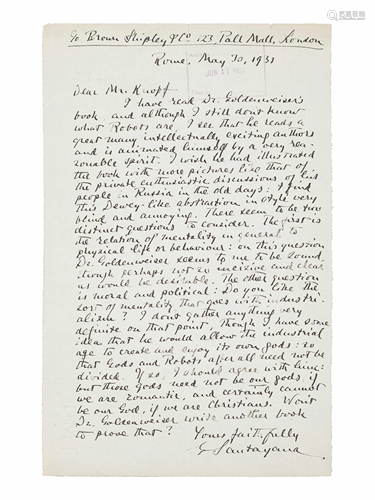 c/o Brown Shipley & Co. 123 Pall Mall, London
Rome, May 30, 1931
Dear Mr. Knopf
I have read Dr. Goldenweiser's
book, and although I still don't know
what Robots are, I see that he reads a
great many intellectually exciting authors
and is animated himself by a very rea-
sonable spirit. I wish he had illustrated
the book with more pictures like that of
the private enthusiastic discussions of his
people in Russia in the old days: I find
this Dewey-like abstraction in style very
blind and annoying. There seem to be two
distinct questions to consider. The first is
the relation of mentality in general to
physical life or behaviour: on this question
Dr. Goldenweiser seems to me to be sound
though perhaps not so incisive and clear
as would be desirable. The other question
is moral and political: Do you like the
sort of mentality that goes with industri-
alism? I don't gather anything very
definite on that point, though I have some
idea that he would allow the industrial
age to create and enjoy its own gods: so
that Gods and Robots after all need not be
divided. If so, I should agree with him:
but those gods need not be our gods, if
we are romantic, and certainly cannot
be our God, if we are Christians. Won't
Dr. Goldenweiser write another book
to prove that?
Yours faithfully
G Santayana